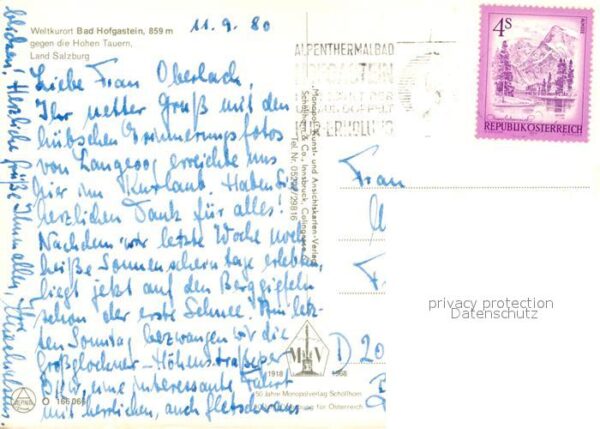 11.9.80
Weltkurort Bad Hofgastein, 859 m
gegen die Hohen Tauern,
Land Salzburg
Liebe Frau Oberbach,
Ihr netter Gruß mit den
hübschen Erinnerungsfotos
von Langeoog erreichte uns
hier im Kurlaub. Haben Sie
herzlichen Dank für alles!
Nachdem wir letzte Woche noch
heiße Sonnenscheintage erlebten,
liegt jetzt auf den Berggipfeln
schon der erste Schnee. Am letz-
ten Sonntag bezwangen wir die
Großglockner-Höhenstraße per
Bus, eine interessante Fahrt
mit herrlichen, auch gletscheraus-
blicken! Herzliche Grüße Ihnen allen, Ihre
ALPENTHERMALBAD
HOFGASTEIN
ERHOLUNG
4S
REPUBLIK ÖSTERREICH
Monopol Kunst- und Ansichtskarten-Verlag
Schöllhorn & Co., Innsbruck, Colingasse
Tel. Nr. 05222/29816
Frau
D 20
MV
1918 1968
50 Jahre Monopolverlag Schöllhorn
für Österreich
O 166066
privacy protection
Datenschutz